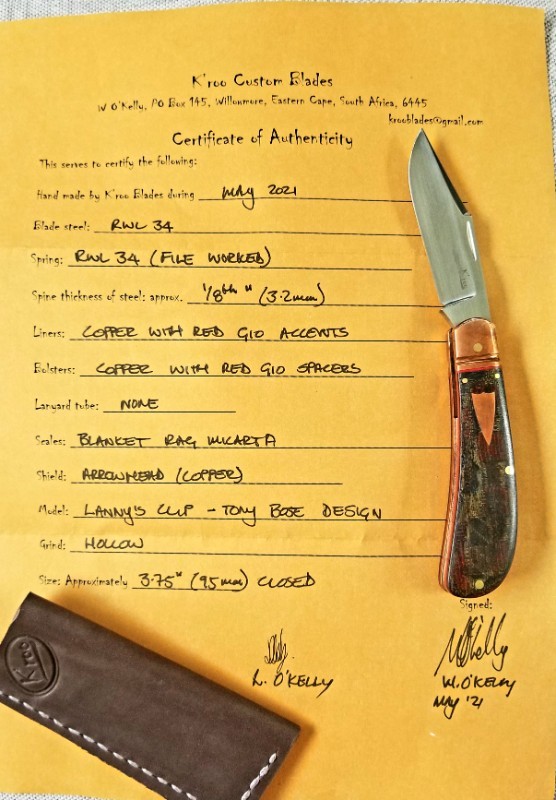 K'roo Custom Blades
W O'Kelly, PO Box 145, Willowmore, Eastern Cape, South Africa, 6445
krooblades@gmail.com
Certificate of Authenticity
This serves to certify the following:
Hand made by K'roo Blades during MAY 2021
Blade steel: RWL 34
Spring: RWL 34 (FILE WORKED)
Spine thickness of steel: approx. 1/8th" (3.2mm)
Liners: COPPER WITH RED G10 ACCENTS
Bolsters: COPPER WITH RED G10 SPACERS
Lanyard tube: NONE
Scales: BLANKET RAG MICARTA
Shield: ARROWHEAD (COPPER)
Model: LANNY'S CLIP - TONY BOSE DESIGN
Grind: HOLLOW
Size: Approximately 3.75" (95mm) CLOSED
Signed:
L. O'KELLY
M O'Kelly
W. O'KELLY
MAY '21
K'roo
K'roo